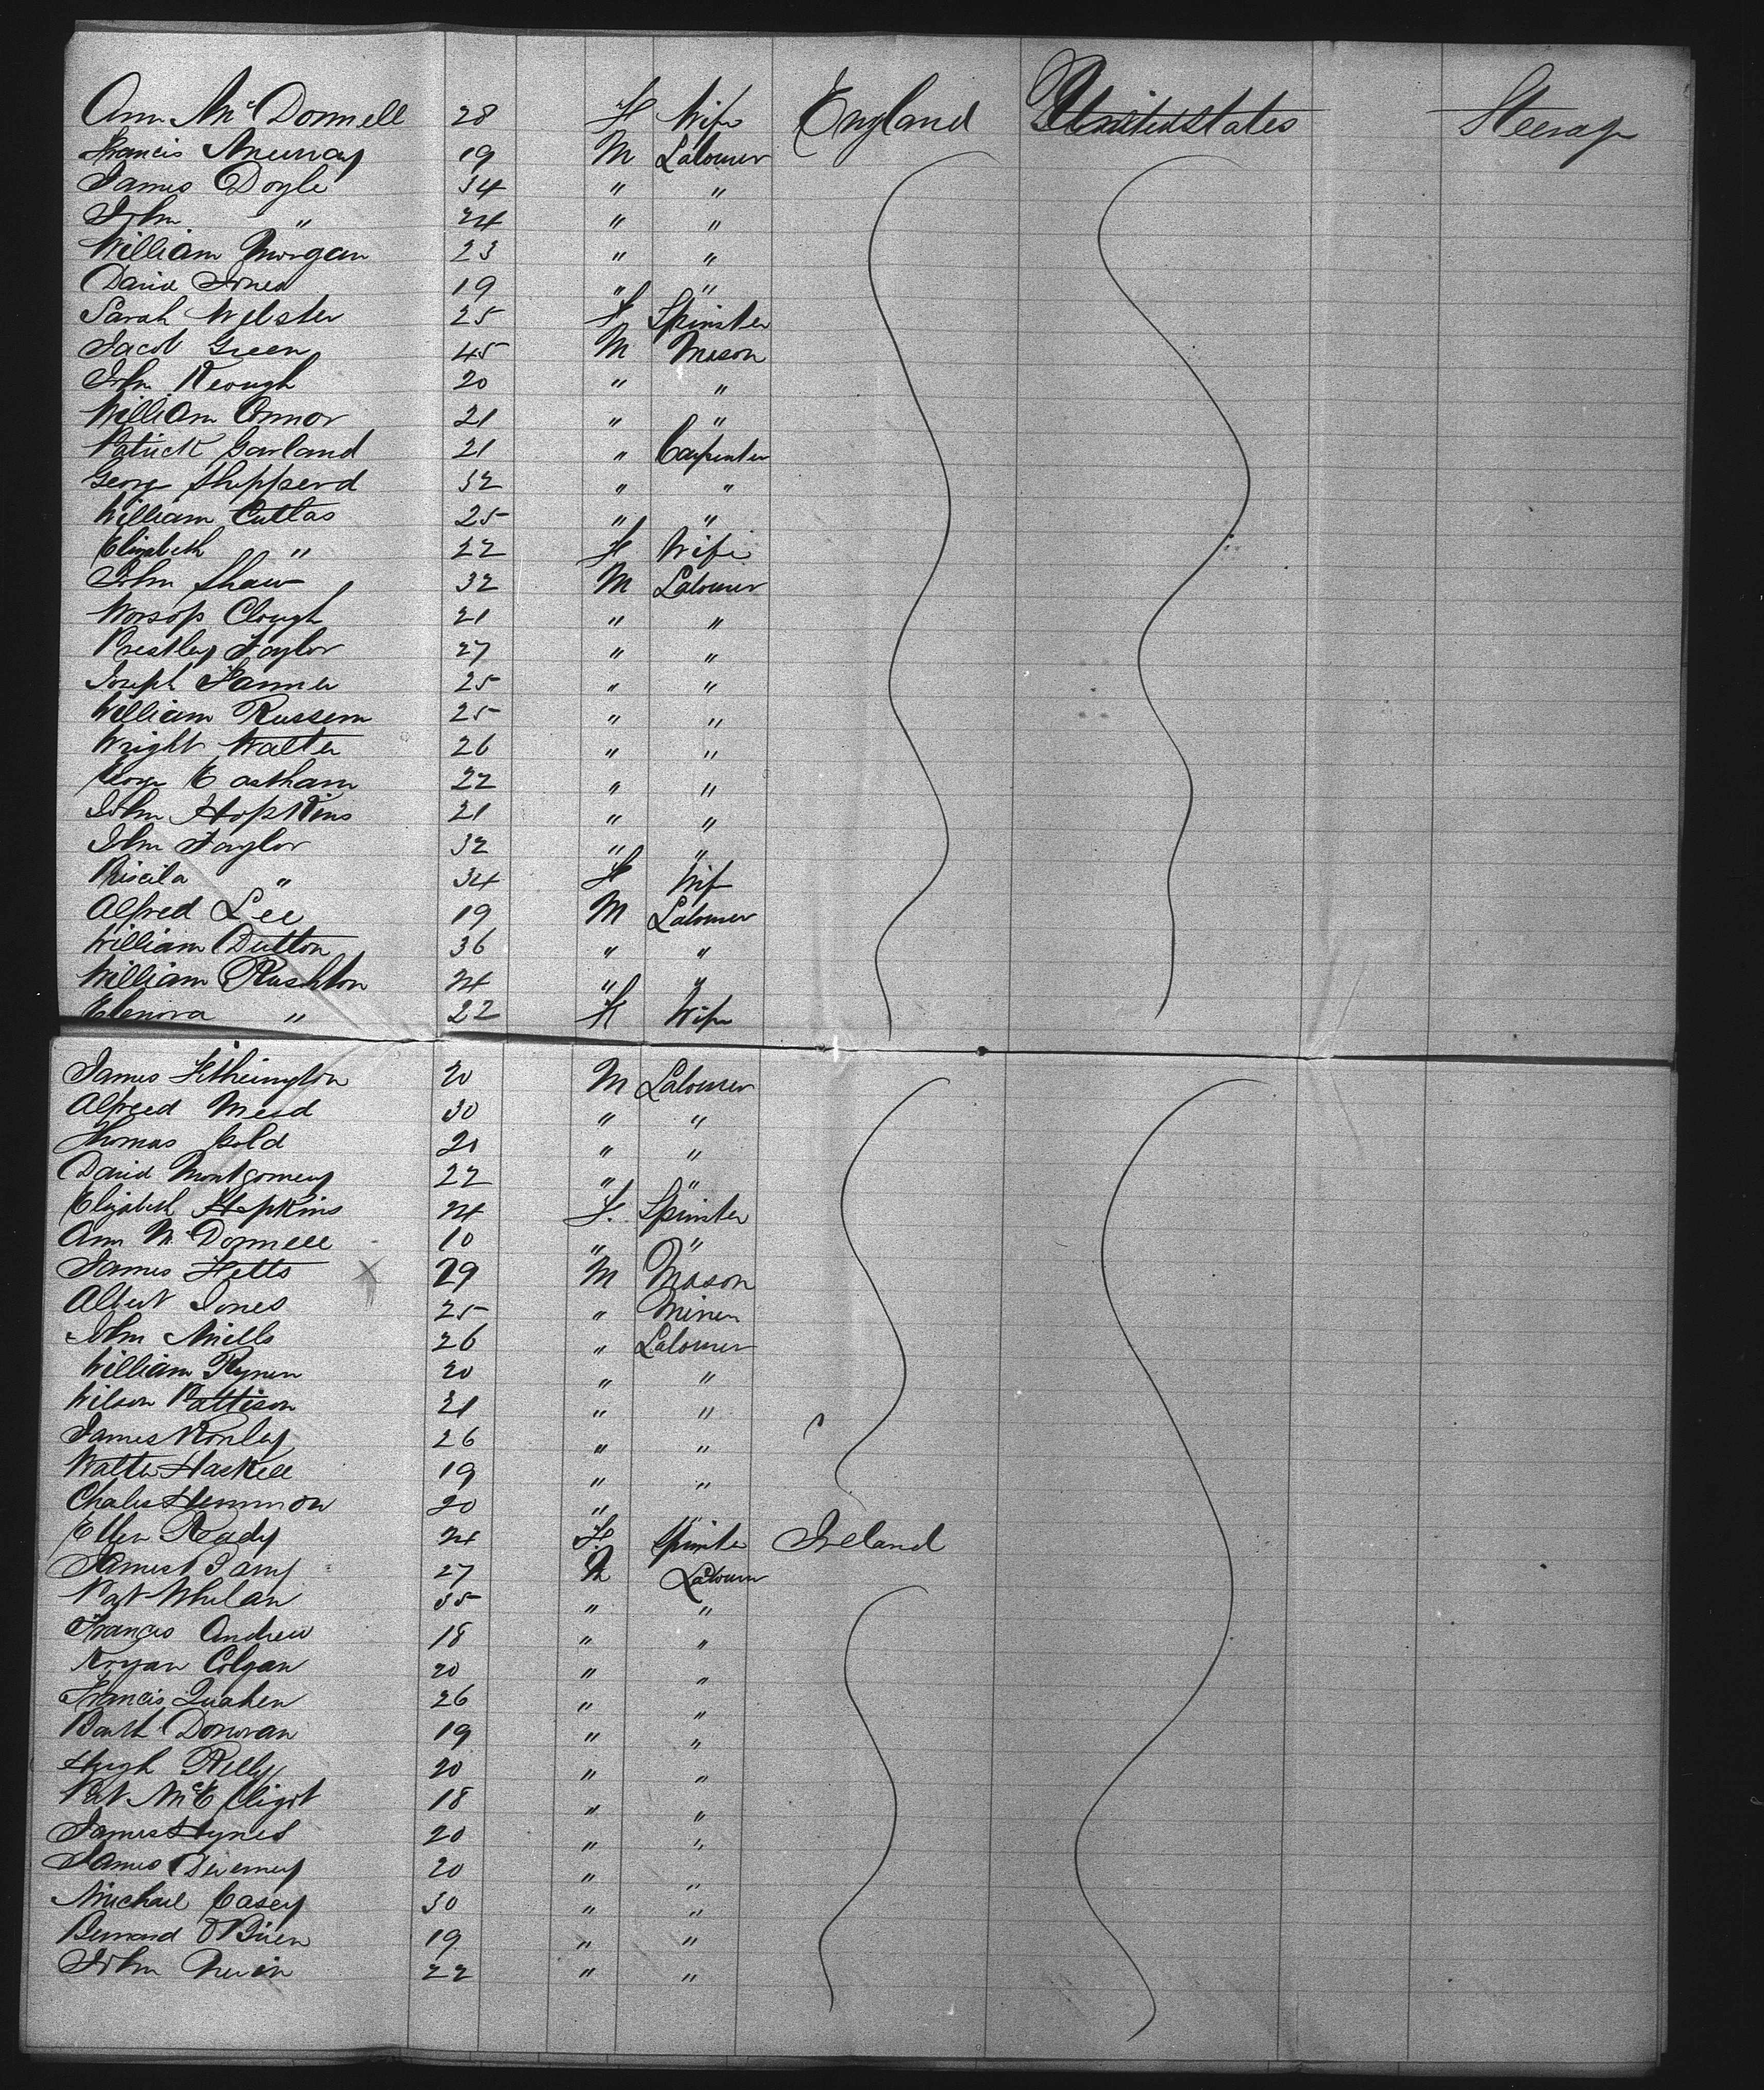 Ann McDonnell 28 F Wife England United States Steerage
Francis Murray 19 M Labourer
James Doyle 34 " "
John " 24 " "
William Morgan 23 " "
David Jones 19 " "
Sarah Webster 25 F Spinster
Jacob Green 45 M Mason
John Keough 20 " "
William Connor 21 " "
Patrick Garland 21 " Carpenter
George Shepperd 32 " "
William Cuttas 25 " "
Elizabeth " 22 F Wife
John Shaw 32 M Labourer
Worsop Clough 21 " "
Prestley Taylor 27 " "
Joseph Farmer 25 " "
William Russem 25 " "
Wright Walter 26 " "
George Eastham 22 " "
John Hopkins 21 " "
John Taylor 32 " "
Priscila " 34 F Wife
Alfred Lee 19 M Labourer
William Dutton 36 " "
William Rushton 24 " "
Elenora " 22 F Wife
James Hetherington 20 M Labourer
Alfred Mead 30 " "
Thomas Gold 20 " "
David Montgomery 22 " "
Elizabeth Hopkins 24 F. Spinster
Ann McDonnell 10 " "
James Fetts 29 M Mason
Albert Jones 25 " Miner
John Mills 26 " Labourer
William Rynen 20 " "
Wilson Pattison 21 " "
James Konley 26 " "
Walter Haskell 19 " "
Charles Hemmon 20 " "
Ellen Ready 24 F. Spinster Ireland
James 27 M Labourer
Pat Whelan 35 " "
Francis Andrew 18 " "
Bryan Colgan 20 " "
Francis 26 " "
Barth Donovan 19 " "
Hugh Reilly 20 " "
Pat McElligot 18 " "
James Hynes 20 " "
James 20 " "
Michael Casey 30 " "
Bernard O'Brien 19 " "
John 22 " "